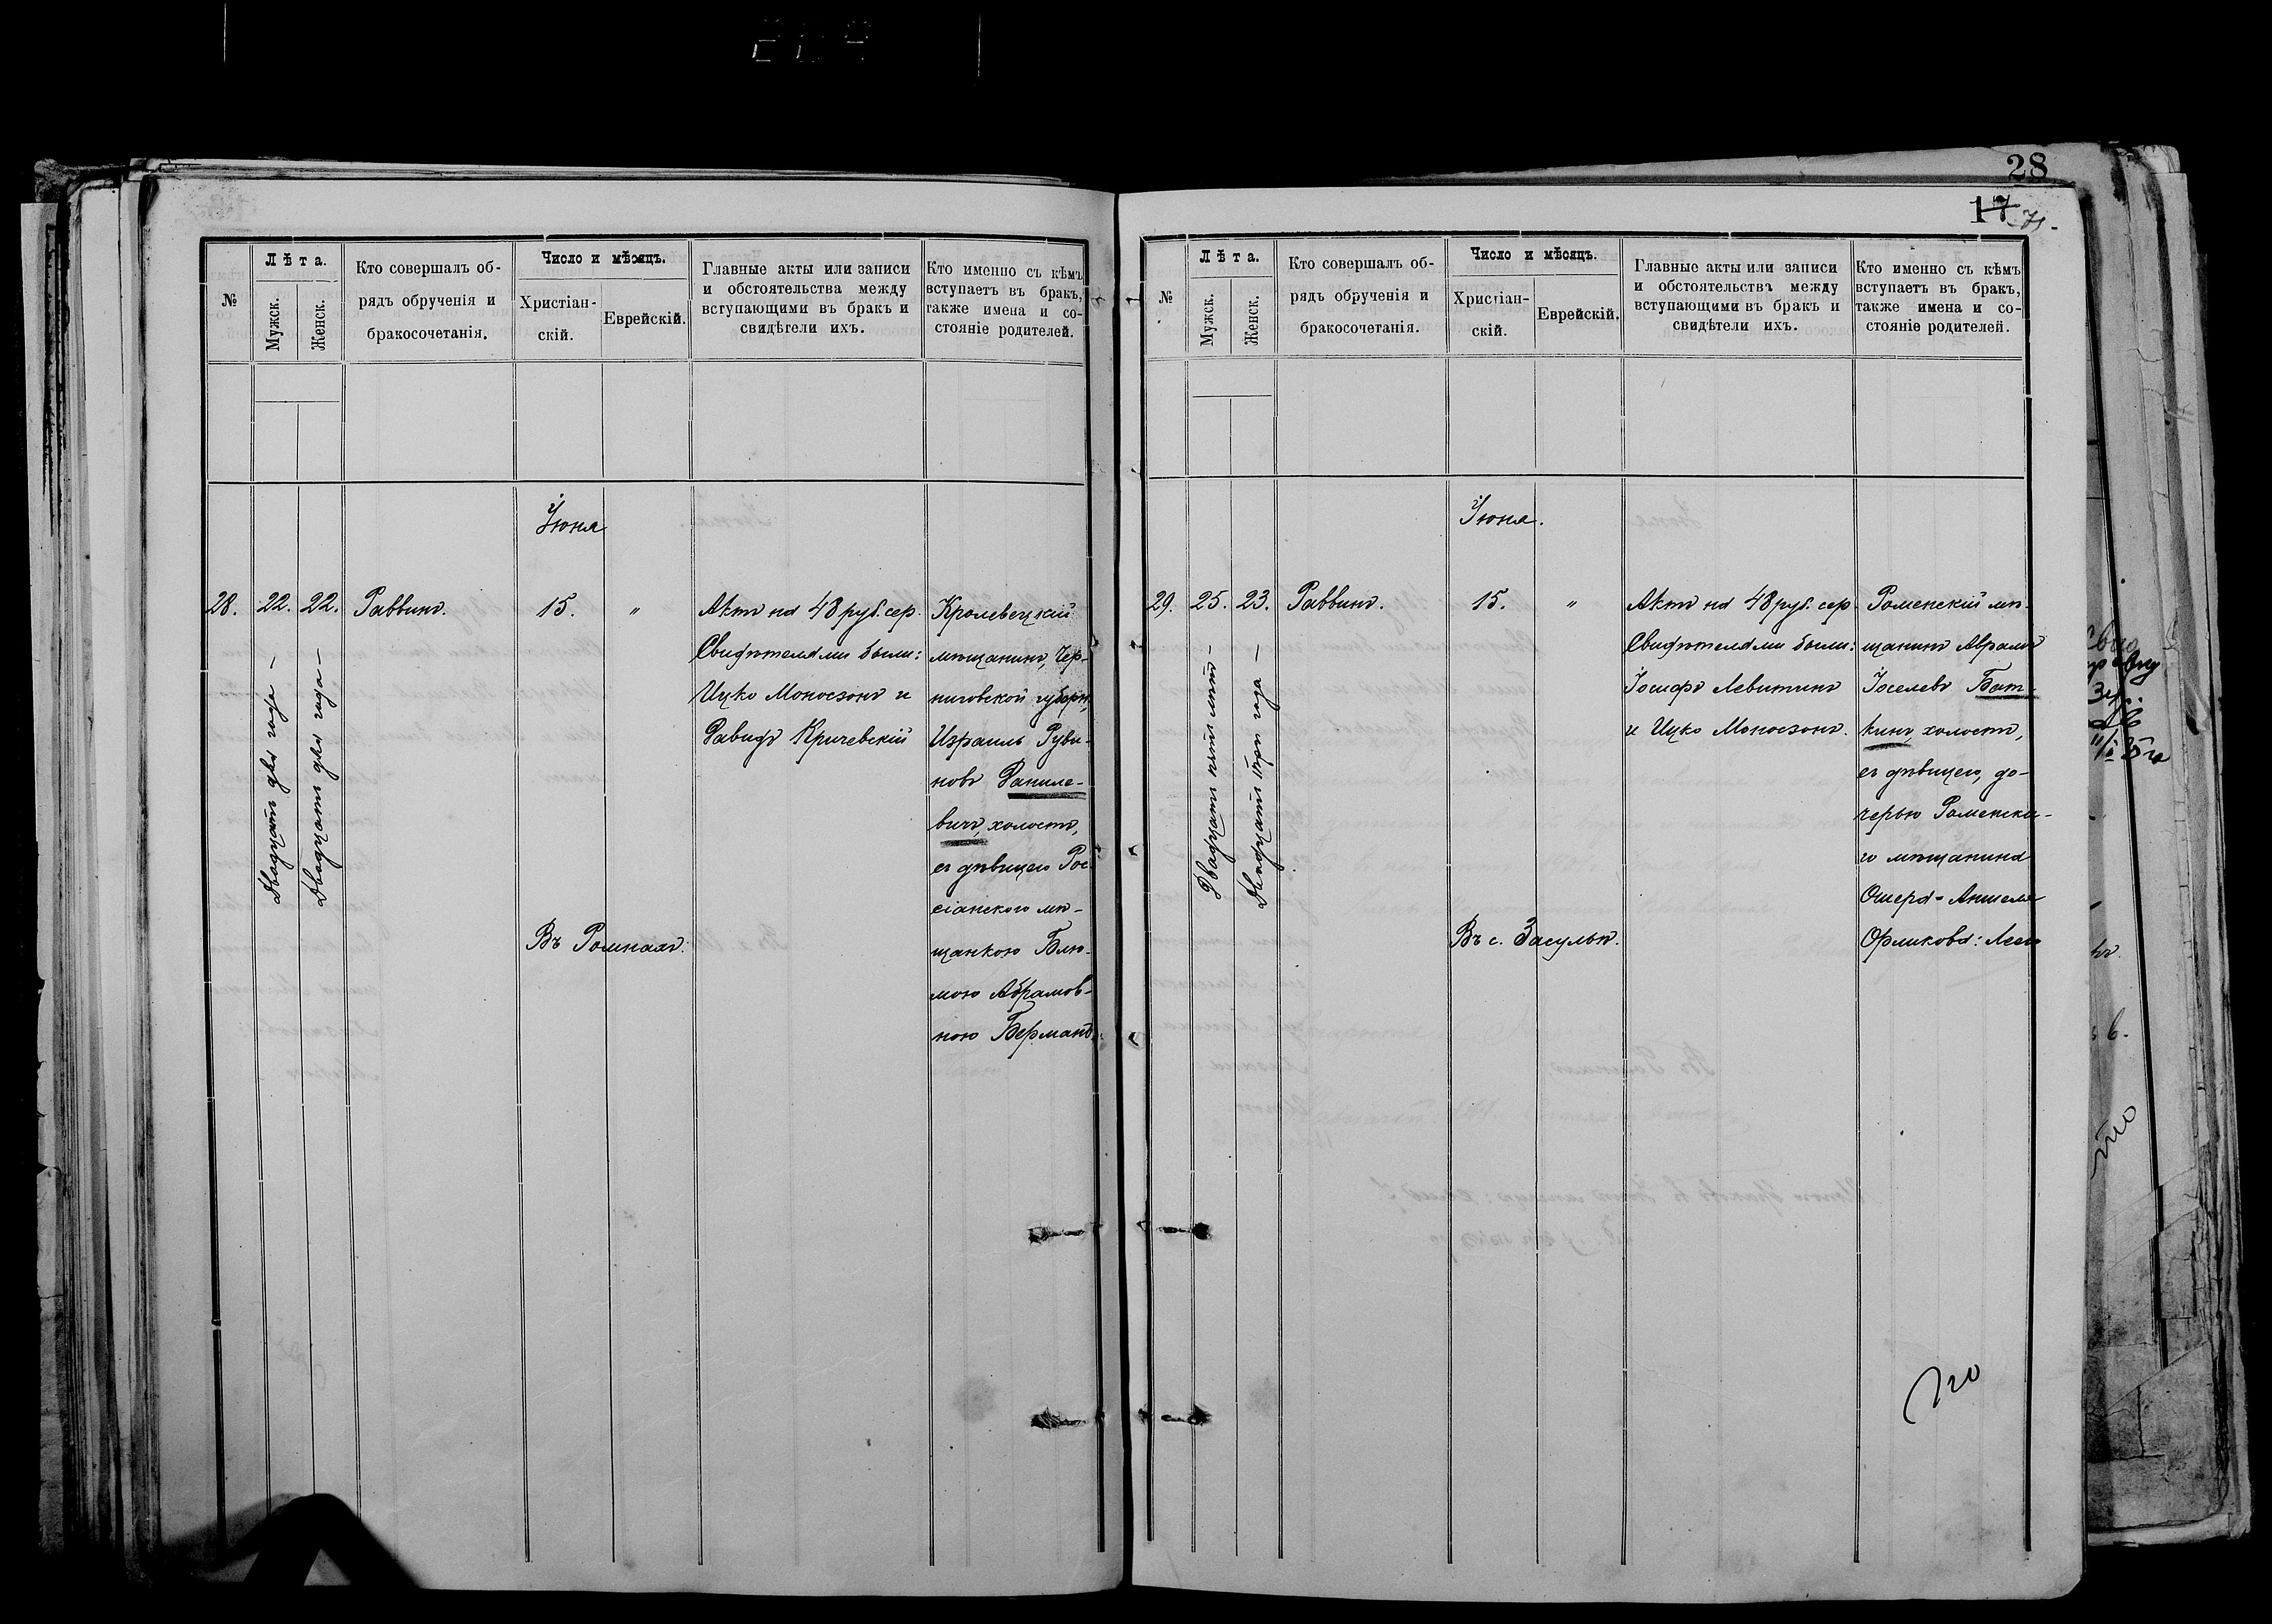 28
17
№
Лѣта.
Мужск.
Женск.
Кто совершалъ об-
рядъ обрученія и
бракосочетанія.
Число и мѣсяцъ.
Христіан-
скій.
Еврейскій.
Главные акты или записи
и обстоятельства между
вступающими въ бракъ и
свидѣтели ихъ.
Кто именно съ кѣмъ
вступаетъ въ бракъ,
также имена и со-
стояніе родителей.
Іюня
28.
22.
22.
Двадцать два года —
Двадцать два года —
Раввинъ.
15.
"
Въ Ромнахъ.
Актъ на 48 руб. сер.
Свидѣтелями были:
Ицко Моносзонъ и
Давидъ Кричевскій
Кролевецкій
мѣщанинъ, Чер-
ниговской губерн,
Израиль Руви-
новъ Даниле-
вичъ, холостъ,
съ дѣвицею Рос
сіанскою мѣ-
щанкою Блю-
мою Абрамов-
ною Берманъ.
№
Лѣта.
Мужск.
Женск.
Кто совершалъ об-
рядъ обрученія и
бракосочетанія.
Число и мѣсяцъ.
Христіан-
скій.
Еврейскій.
Главные акты или записи
и обстоятельства между
вступающими въ бракъ и
свидѣтели ихъ.
Кто именно съ кѣмъ
вступаетъ въ бракъ,
также имена и со-
стояніе родителей.
Іюня.
29.
25.
23.
Двадцать пять лѣтъ —
Двадцать три года —
Раввинъ.
15.
"
Въ с. Засульѣ.
Актъ на 48 руб. сер.
Свидѣтелями были:
Іосифъ Левитинъ
и Ицко Моносзонъ.
Роменскій мѣ-
щанинъ Абрамъ
Іоселевъ Бат-
кинъ, холостъ,
съ дѣвицею, до-
черью Роменска-
го мѣщанина
Ошера-Аншеля
Орликова: Леею